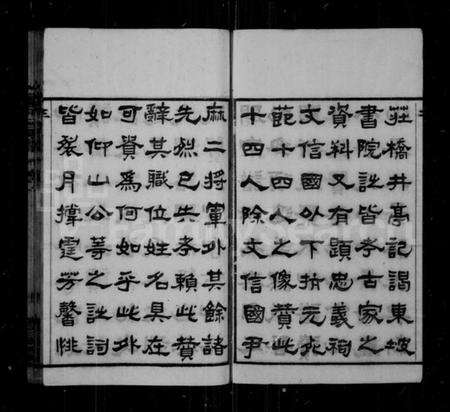 莊橋井亭記謁東坡
書院詩皆考古家之
資料又有題忠義祠
文信國外下揹元戎
範十四人之像贊此
十四人除文信國尹
麻二將軍外其餘諸
先烈已失考賴此贊
辭其職位姓名具在
可貴為何如乎此外
如仰山公等之詩詞
皆裁月撐霆芳馨悱